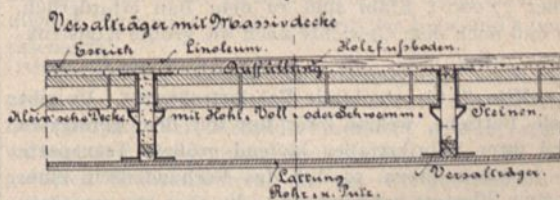 Versalträger mit Massivdecke
Estrich Linoleum. Holzfussboden.
Auffüllung
Kleinsche Decke mit Hohl-, Voll-, oder Schwemm- Steinen.
Lattung Versalträger.
Rohr u. Putz.